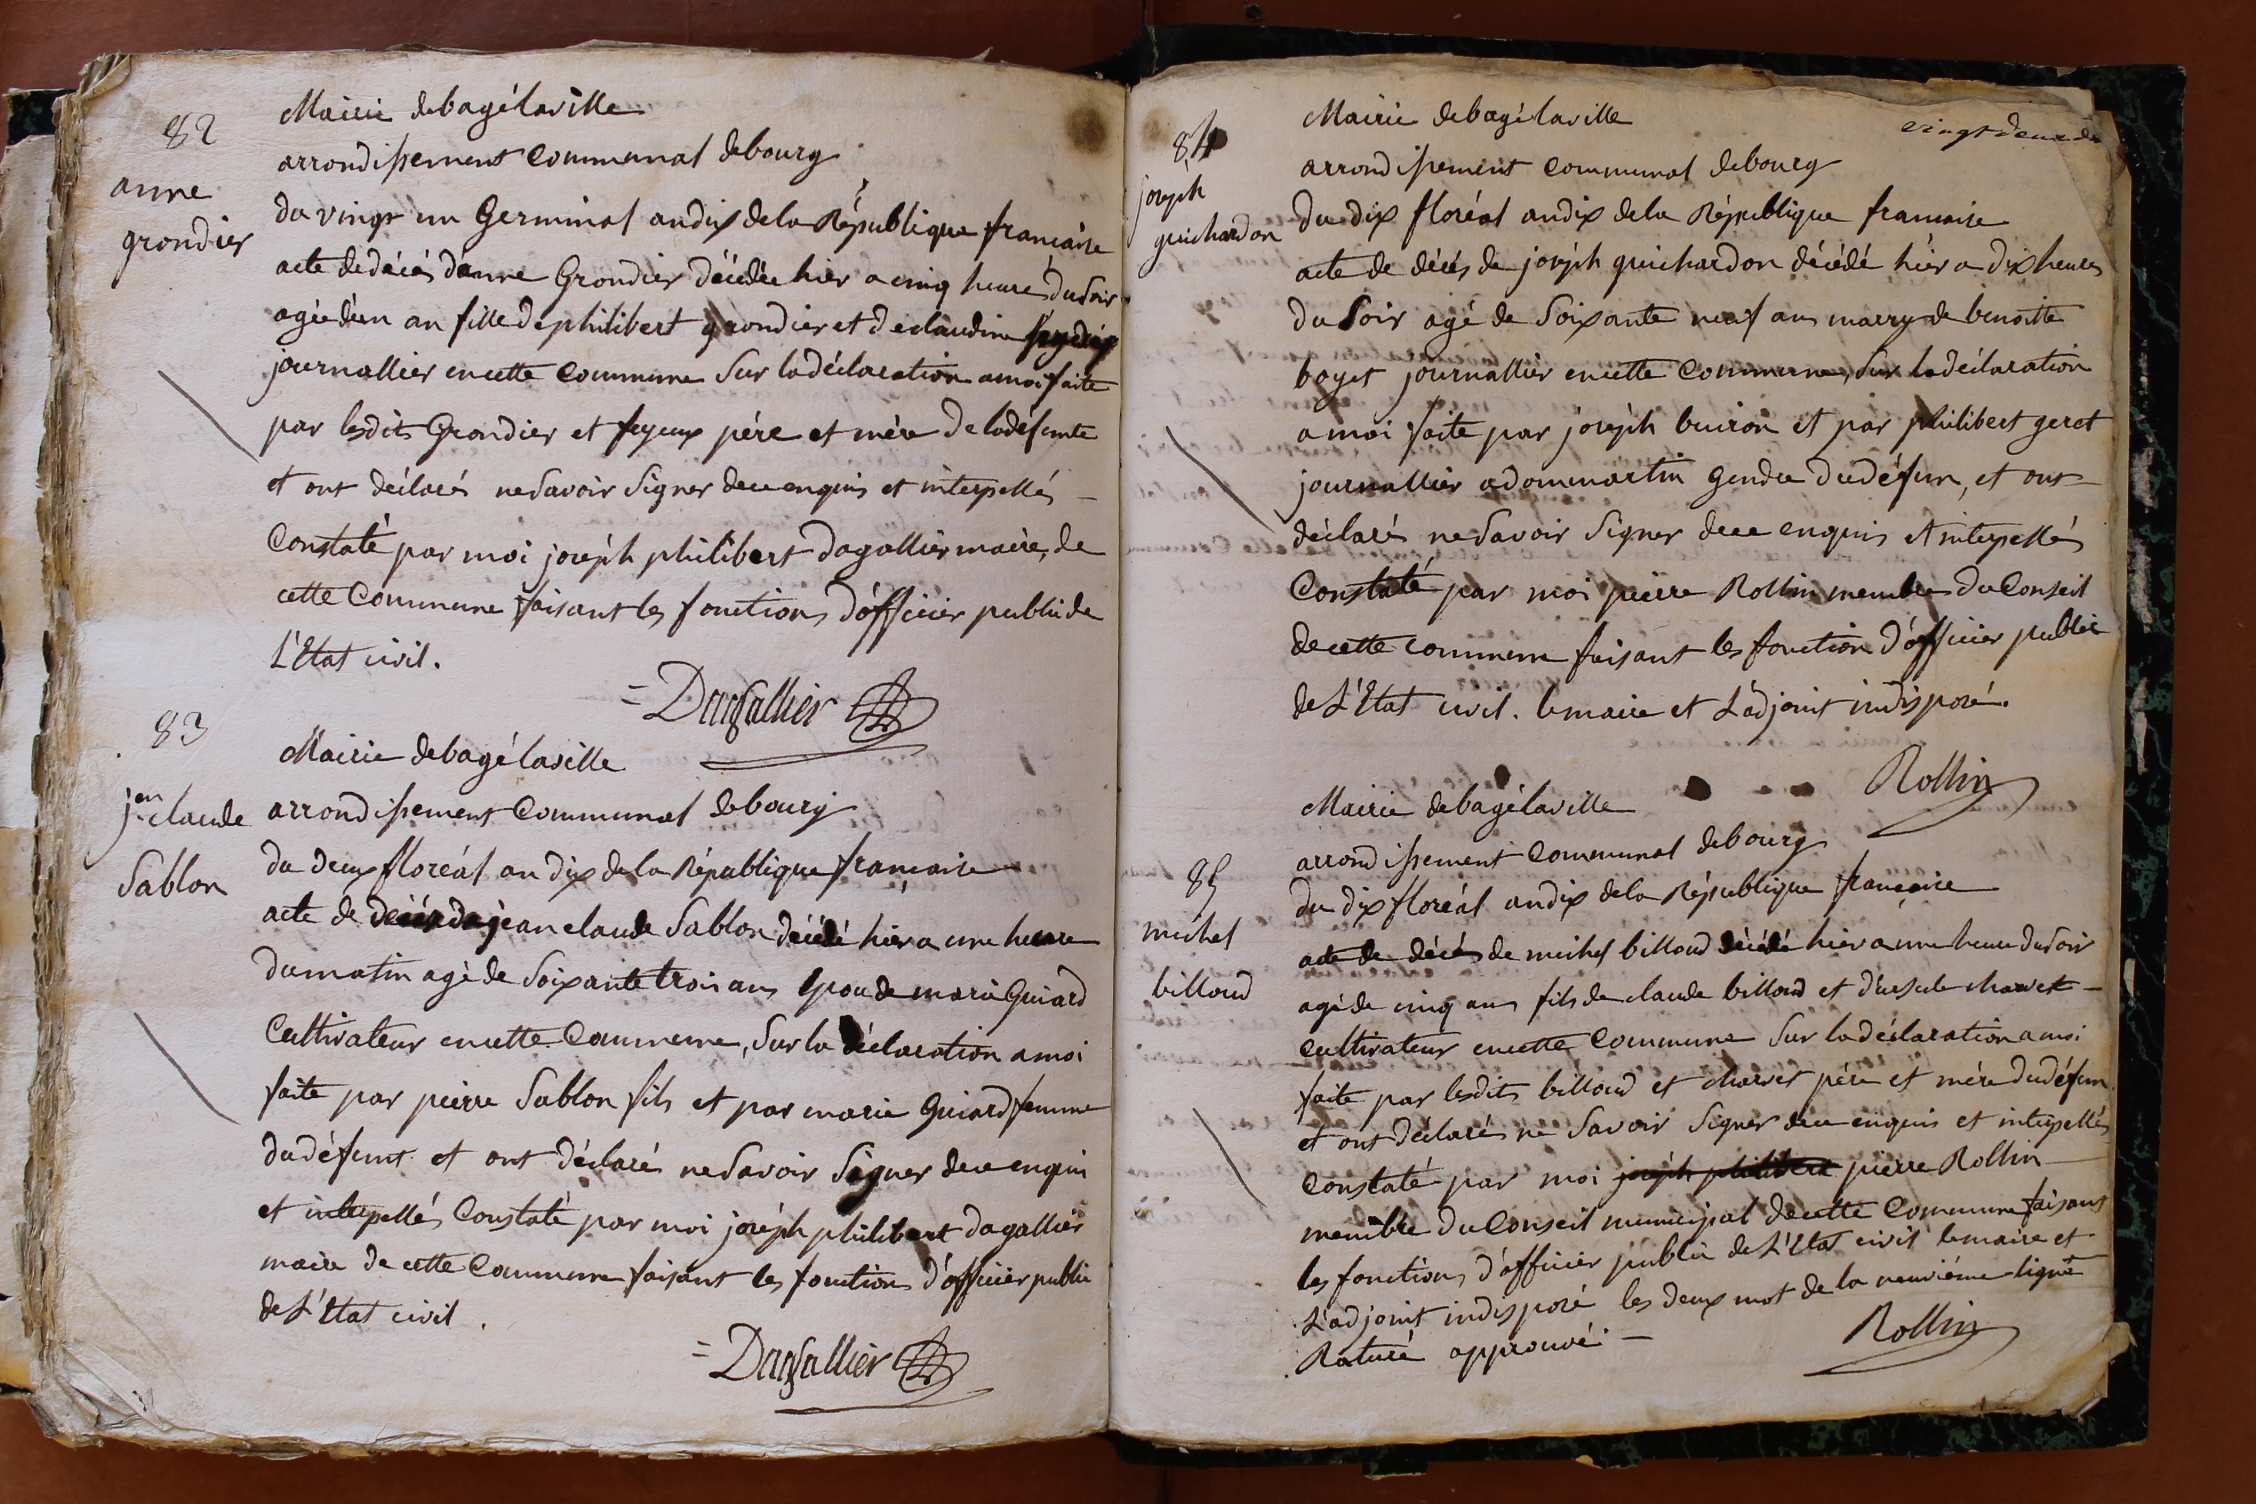 82
anne
grondier
Mairie debagélaville
arrondissement communal debourg
du vingt un Germinal andix dela République française
acte dedécés d'anne Grondier décédée hier a cinq heure dusoir
agée d'un an fille dephilibert grondier et declaudine
journallier encette commune sur ladéclaration amoi faite
par lesdits Grondier et feyeux pére et mére deladéfunte
et ont déclarés nesavoir signer dece enquis et interpellés
Constaté par moi joséph philibert dagallier maire, de
cette Commune faisant les fonctions d'officier publicde
L'Etat civil.
= Dagallier
83
jen claude
Sablon
Mairie debagélaville
arrondissement Communal debourg
du deux floréal an dix dela République francaise
acte de décés de jean claude Sablon décédé hier a une heure
dumatin agé de soixante trois ans époux de marie Guiard
Cultivateur encette Commune, sur la déclaration amoi
faite par pierre Sablon fils et par marie Guiard femme
dudéfunt et ont déclarés nesavoir signer dece enquis
et interpellés Constaté par moi joséph philibert dagallier
maire de cette Commune faisant les fonctions d'officier public
de L'Etat civil.
= Dagallier
vingt deux
84
joséph
guichardon
Mairie debagélaville
arrondissement communal debourg
du dix floréal andix dela République francaise
acte de décés de joséph guichardon décédé hier a dix heures
du soir agé de soixante neuf ans marry de benoitte
boyet journallier encette commune, sur ladéclaration
a moi faite par joséph buiron et par philibert geret
journallier adommartin gendre dudéfun, et ont
déclarés nesavoir signer dece enquis et interpellés
Constaté par moi pierre Rollin membre duConseil
decette commune faisant les fonction d'officier public
de L'Etat civil. lemaire et L'adjoint indisposé.
Rollin
85
michel
billoud
Mairie debagélaville
arrondissement communal debourg
du dix floréal andix dela République francaise
acte de décés de michel billoud décédé hier a une heure dusoir
agé de cinq ans fils de claude billoud et d'ursule charvet
cultivateur encette commune sur ladéclaration a moi
faite par lesdits billoud et charvet pére et mére dudéfun
et ont déclarés ne savoir signer dece enquis et interpellés
constaté par moi joséph philibert pierre Rollin
membre duConseil municipal decette commune faisant
les fonctions d'officier public de L'Etat civil lemaire et
L'adjoint indisposé les deux mot de la neuviéme ligne
Raturé approuvé.
Rollin